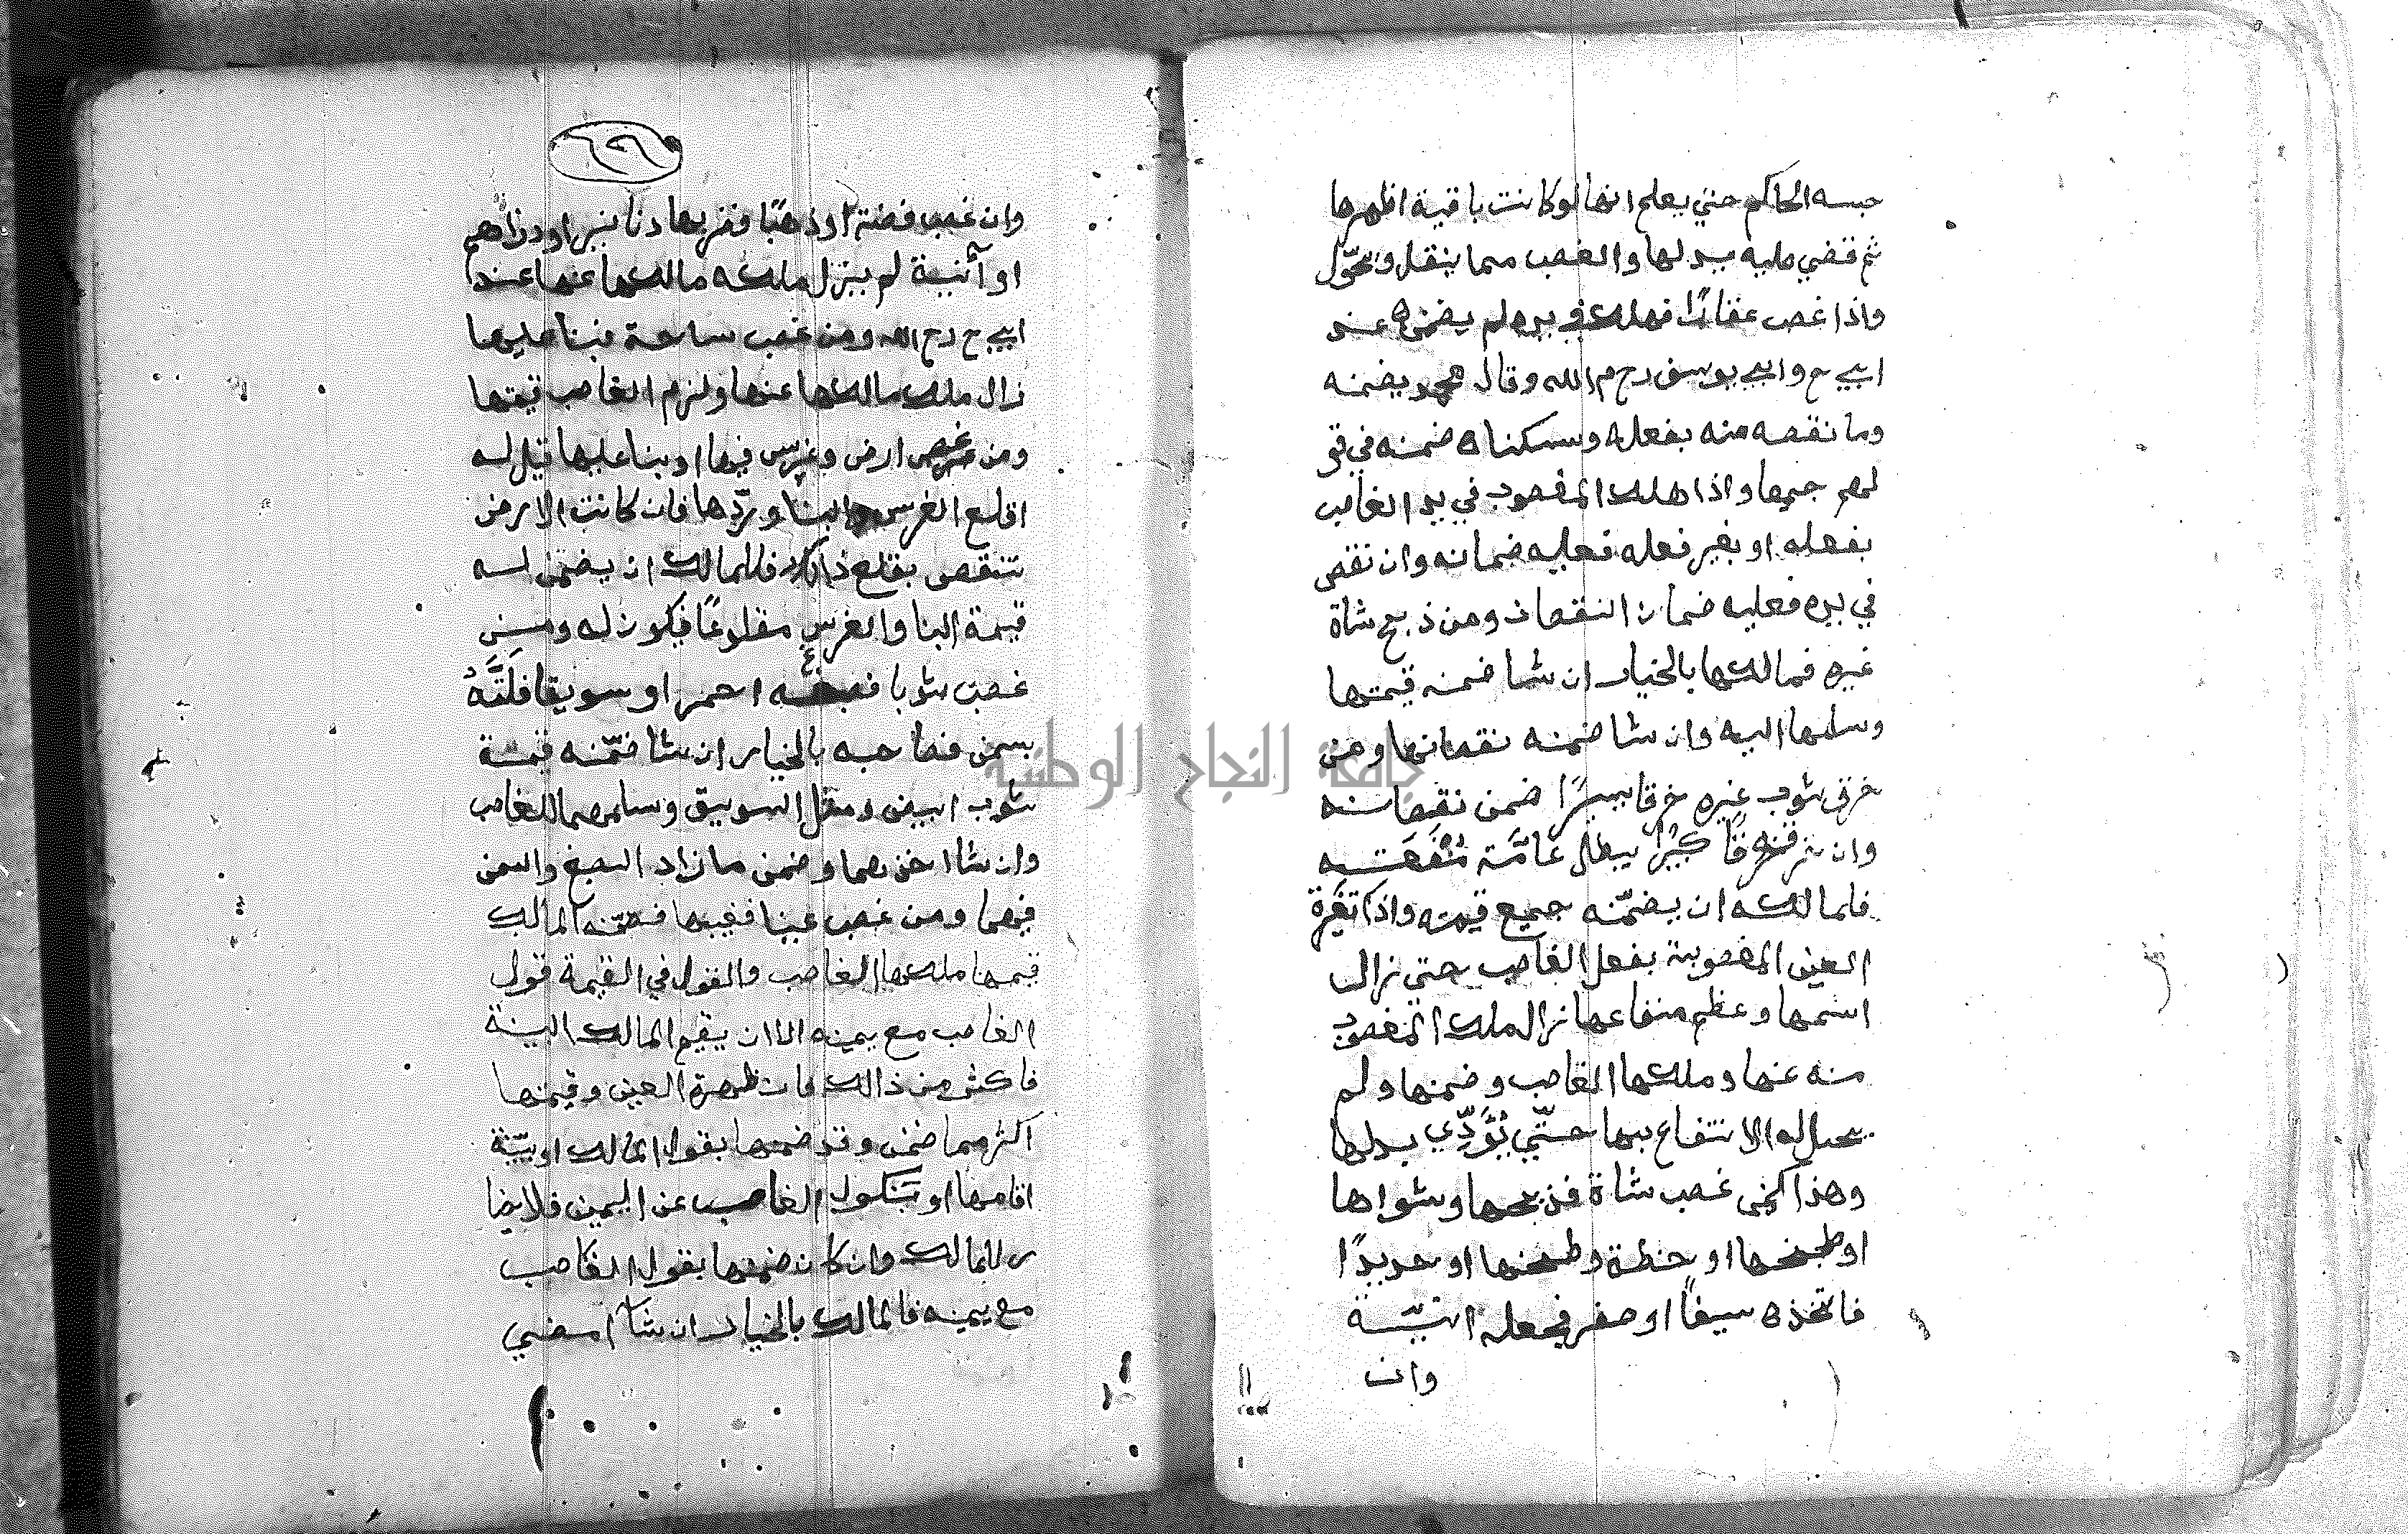 حبسه الحاكم حتي يعلم انها لو كانت باقية اظهرها
ثم قضي عليه ببدلها والغصب مما ينقل ويحوّل
واذا غصب عقارًا فهلك في يده لم يضمنه عند
ابي ح وابي يوسف رحم الله وقال محمد يضمنه
وما نقصه منه بفعله وسكناه ضمنه في قو
لهم جميعا واذا هلك المغصوب في يد الغاصب
بفعله او بغير فعله فعليه ضمانه وان نقص
في يده فعليه ضمان النقصان ومن ذبح شاة
غيره فمالكها بالخيار ان شا ضمنه قيمتها
وسلمها اليه وان شا ضمنه نقصانها ومن
خرق ثوب غيره خرقا يسيرًا ضمن نقصانه
وان خرقه خرقًا كبيرًا يبطل عامّة منفعته
فلمالكه ان يضمّنه جميع قيمته واذا تغيرة
العين المغصوبة بفعل الغاصب حتي زال
اسمها وعظم منفاعها زال ملك المغصوب
منه عنها وملكها الغاصب وضمنها ولم
يحل له الانتفاع بها حتّي يُؤدِّي بدلها
وهذا كمن غصب شاة فذبحها وشواها
او طبخها او حنطة وطحنها او حديدًا
فاتخذه سيفًا او صفر فجعله انيّة
وان
٦٩
وان غصب فضة او ذهبًا فضربها دنانير او دراهم
او آنية لم يزل ملكه مالكها عنها عند
ابي ح رح الله ومن غصب ساحة فبنا عليها
زال ملك مالكها عنها ولزم الغاصب قيمتها
ومن غصب ارض وغرس فيها او بنا عليها قيل له
اقلع الغرس والبنا وردّها فان كانت الارض
تنقص بقلع ذالك فللمالك ان يضمن له
قيمة البنا والغرس مقلوعًا فيكون له ومن
غصب ثوبا فصبغه احمر او سويقا فلتَّهُ
بسمن فصاحبه بالخيار ان شا ضمّنه قيمة
ثوب ابيض ومثل السويق وسلمهما للغاصب
وان شا اخذهما وضمن ما زاد الصبغ والسمن
فيهما ومن غصب عينا فغيبها فضمّنه المالك
قيمتها ملكها الغاصب والقول في القيمة قول
الغاصب مع يمينه الا ان يقيم المالك البينة
فاكثر من ذالك فان ظهرة العين وقيمتها
اكثر مما ضمن وقد ضمنها بقول المالك او بيّنة
اقامها او بنكول الغاصب عن اليمين فلا خيا
ر للمالك وان كان ضمنها بقول الغاصب
مع يمينه فالمالك بالخيار ان شآ امضي
جامعة النجاح الوطنية